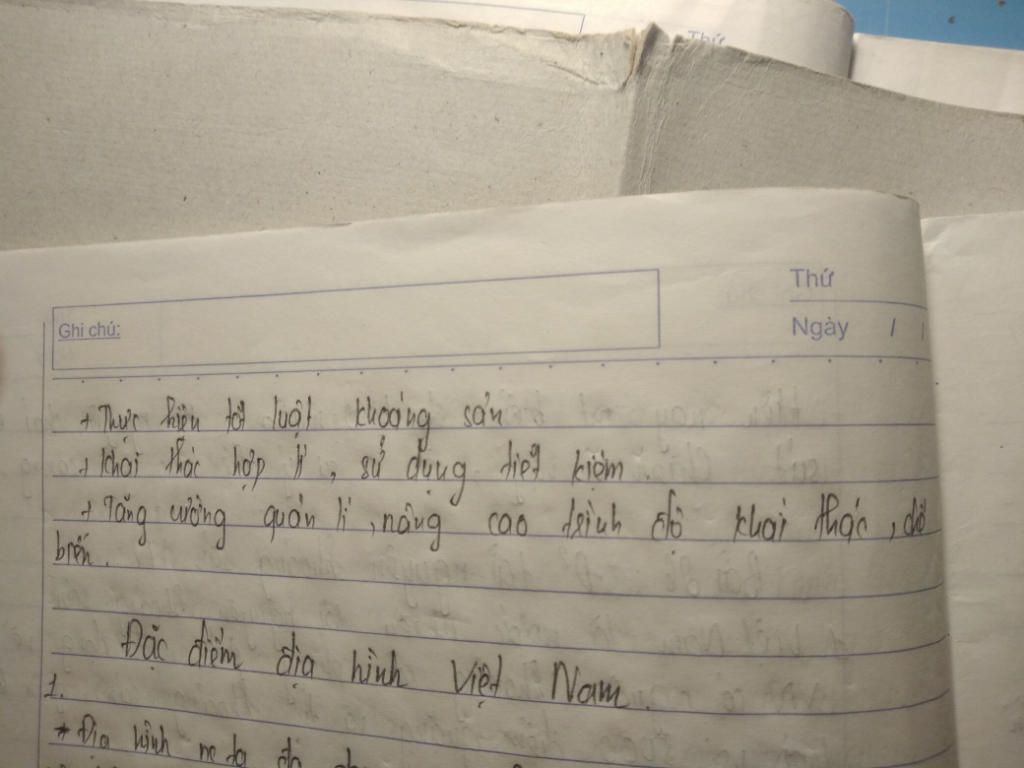 Thứ
Thứ
Ghi chú:
Ngày / /
+ Thực hiện tốt luật khoáng sản
+ Khai thác hợp lí, sử dụng tiết kiệm.
+ Tăng cường quản lí, nâng cao trình độ khai thác, chế
biến.
Đặc điểm địa hình Việt Nam.
1.
* Địa hình nc ta đa